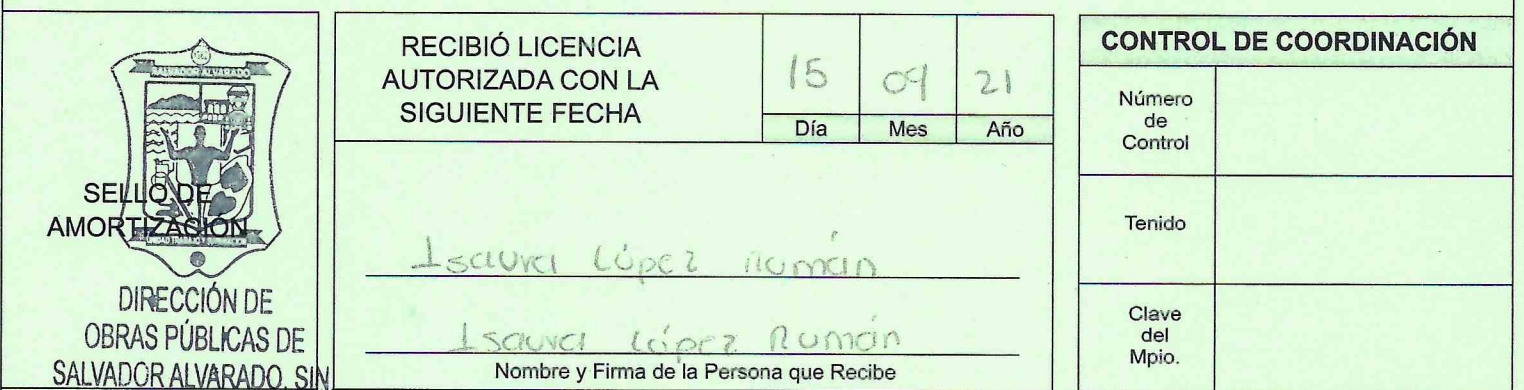 SALVADOR ALVARADO
SELLO DE
AMORTIZACIÓN
DIRECCIÓN DE
OBRAS PÚBLICAS DE
SALVADOR ALVARADO, SIN
RECIBIÓ LICENCIA
AUTORIZADA CON LA
SIGUIENTE FECHA
15 09 21
Día Mes Año
Isaura López Román
Isaura López Román
Nombre y Firma de la Persona que Recibe
CONTROL DE COORDINACIÓN
Número
de
Control
Tenido
Clave
del
Mpio.